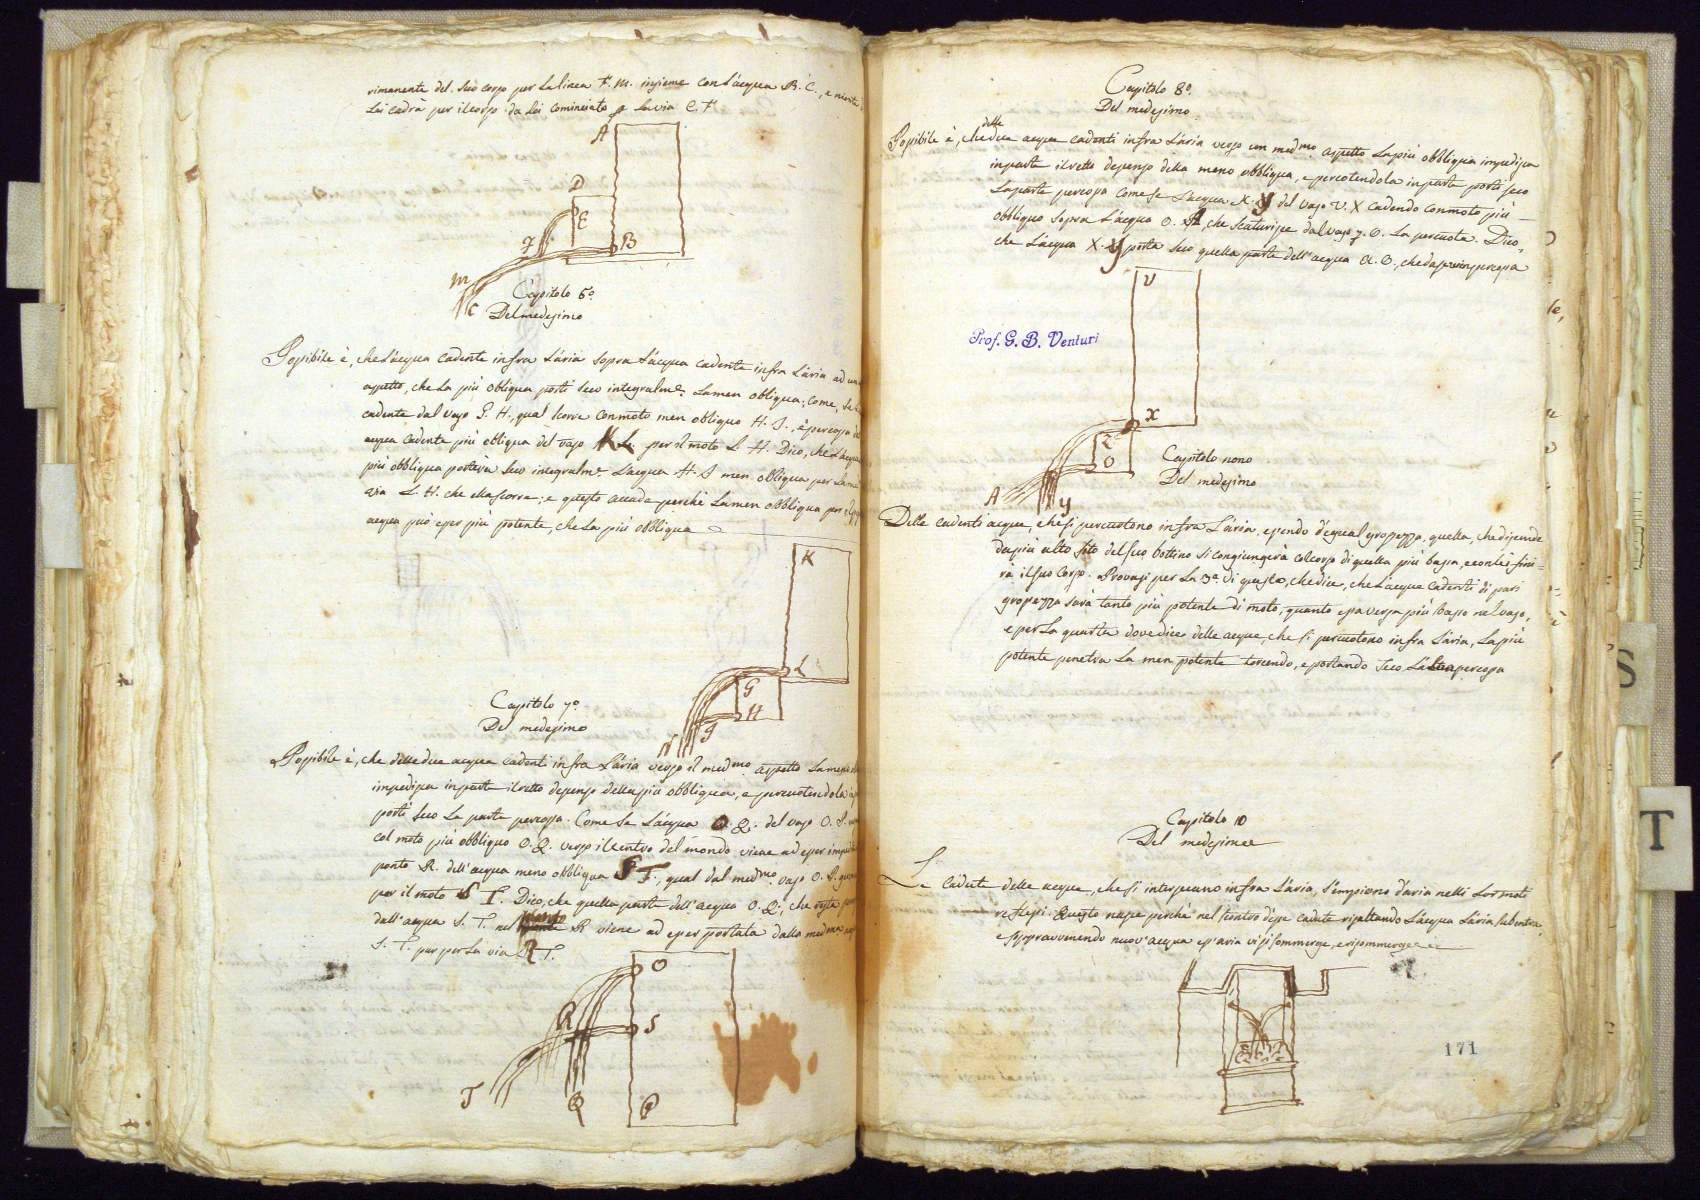 rimanente del suo corpo per la linea F. M. insieme con l'acqua B. C., e niente
lei cadrà per il corpo da lei cominciato per la via C. F.
A
D
E
F
B
M
C
Capitolo 6º
Del medesimo
Possibile è, che l'acqua cadente infra l'aria sopra l'acqua cadente infra l'aria ad un
aspetto, che la più obliqua porti seco integralm.e la men obliqua; come, se
cadente dal vaso G. H., qual scorre con moto men obliquo H. I., è percossa
acqua cadente più obliqua del vaso K L. per il moto L. H. Dico, che l'acqua
più obbliqua porterà seco integralm.e l'acqua H. I men obliqua per la
via L. H. che ella scorre: e questo accade perchè la men obbliqua per
acqua può esser più potente, che la più obbliqua
K
L
G
H
I
N
Capitolo 7º
Del medesimo
Possibile è, che delle due acque cadenti infra l'aria verso il med.mo aspetto la meno
impedisca in parte il retto descenso della più obbliqua, e percuotendola
porti seco la parte percossa. Come se l'acqua O. Q. del vaso O. P.
col moto più obbliquo O. Q. verso il centro del mondo viene ad esser
ponto R. dell'acqua meno obbliqua S T., qual dal med.mo vaso O. P.
per il moto S T. Dico, che quella parte dell'acqua O. Q., che resta
dall'acqua S. T. nel ponto R viene ad esser portata dalla medma
S. T. pur per la via R T.
O
R
S
T
Q
P
Capitolo 8º
Del medesimo
delle
Possibile è, che due acque cadenti infra l'aria verso un med.mo aspetto la più obbliqua impedisca
in parte il retto descenso della meno obbliqua, e percotendola in parte porti seco
la parte percossa come se l'acqua X. y del vaso V. X cadendo con moto più
obbliquo sopra l'acqua O. A, che scaturisce dal vaso Z. O. la percuota. Dico,
che l'acqua X. y porta seco quella parte dell'acqua A. O., che da se vien percossa
V
Prof. G. B. Venturi
X
Z
O
A
y
Capitolo nono
Del medesimo
Delle cadenti acque, che si percuotono infra l'aria, essendo d'egual grossezza, quella, che discende
da più alto sito del suo bottino si congiungerà col corpo di quella più bassa, e con lei fini-
rà il suo corso. Provasi per la 3a di questo, che dice, che l'acque cadenti di pari
grossezza sarà tanto più potente di moto, quanto essa versa più basso nel vaso,
e per la quarta dove dice delle acque, che si percuotono infra l'aria, la più
potente penetra la men potente torcendo, e portando seco l'acqua percossa
Capitolo 10
Del medesimo
Le cadute delle acque, che si interseccano infra l'aria, s'empiono d'aria nelli lor moti
reflessi. Questo nasce perchè nel centro d'esse cadute risaltando l'acqua l'aria subentra,
e sopravvenendo nuov'acqua ess'aria vi si sommerge, e risommerge
171
S
T